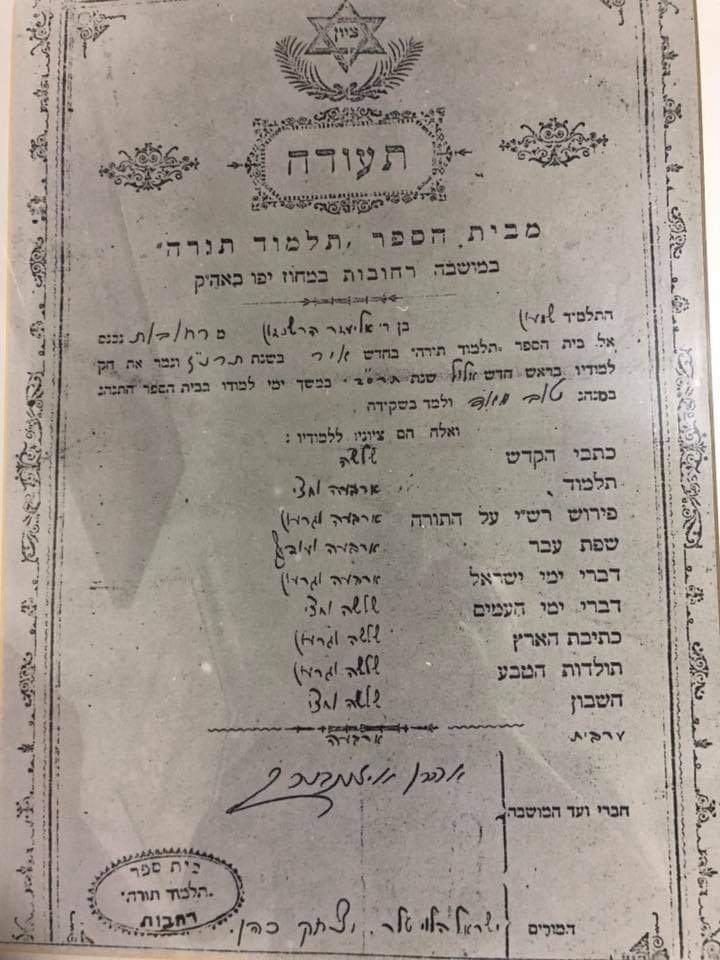 ציון
תעודה
מבית הספר "תלמוד תורה"
במושבה רחובות במחוז יפו באה"ק
התלמיד שמעון בן ר' אליעזר הרשנזון מרחובות נכנס
אל בית הספר "תלמוד תורה" בחדש אייר בשנת תרנ"ז וגמר את חק
למודיו בראש חדש אלול שנת תרס"ב. במשך ימי למודו בבית הספר התנהג
במנהג טוב מאד ולמד בשקידה
ואלה הם ציוניו ללמודיו:
כתבי הקדש שלשה
תלמוד ארבעה וחצי
פירוש רש"י על התורה ארבעה וגרעון
שפת עבר ארבעה
דברי ימי ישראל ארבעה וגרעון
דברי ימי העמים שלשה וחצי
כתיבת הארץ שלשה וגרעון
תולדות הטבע שלשה וגרעון
חשבון שלשה וחצי
ערבית ארבעה
אהרן אייזענבערג
חברי ועד המושבה
המורים ישראל הלוי טלר. יצחק כהן.
בית ספר
"תלמוד תורה"
רחבות